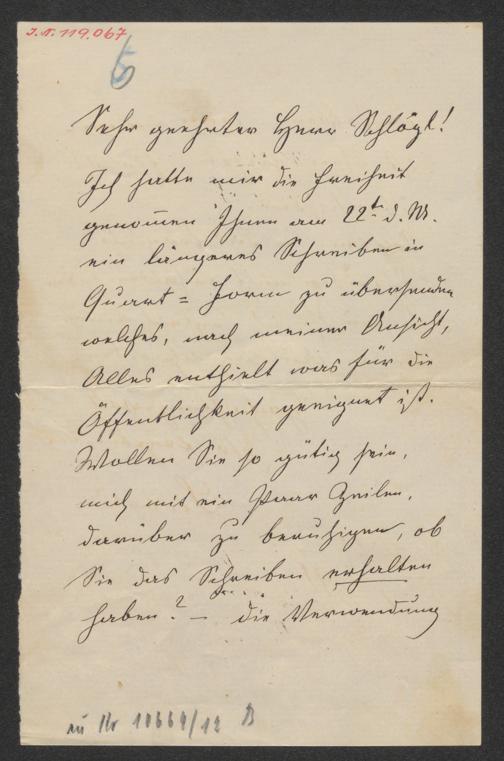 J.N. 119.067
6
Sehr geehrter Herr Schlögl!
Ich hatte mir die Freiheit
genom̅en Ihnen am 22t. d. M.
ein längeres Schreiben in
Quart = Form zu übersenden
welches, nach meiner Ansicht,
Alles enthielt was für die
Öffentlichkeit geeignet ist.
Wollen Sie so gütig sein,
mich mit ein Paar Zeilen,
darüber zu beruhigen, ob
Sie das Schreiben erhalten
haben? – die Verwendung
zu Nr 10669/12 B